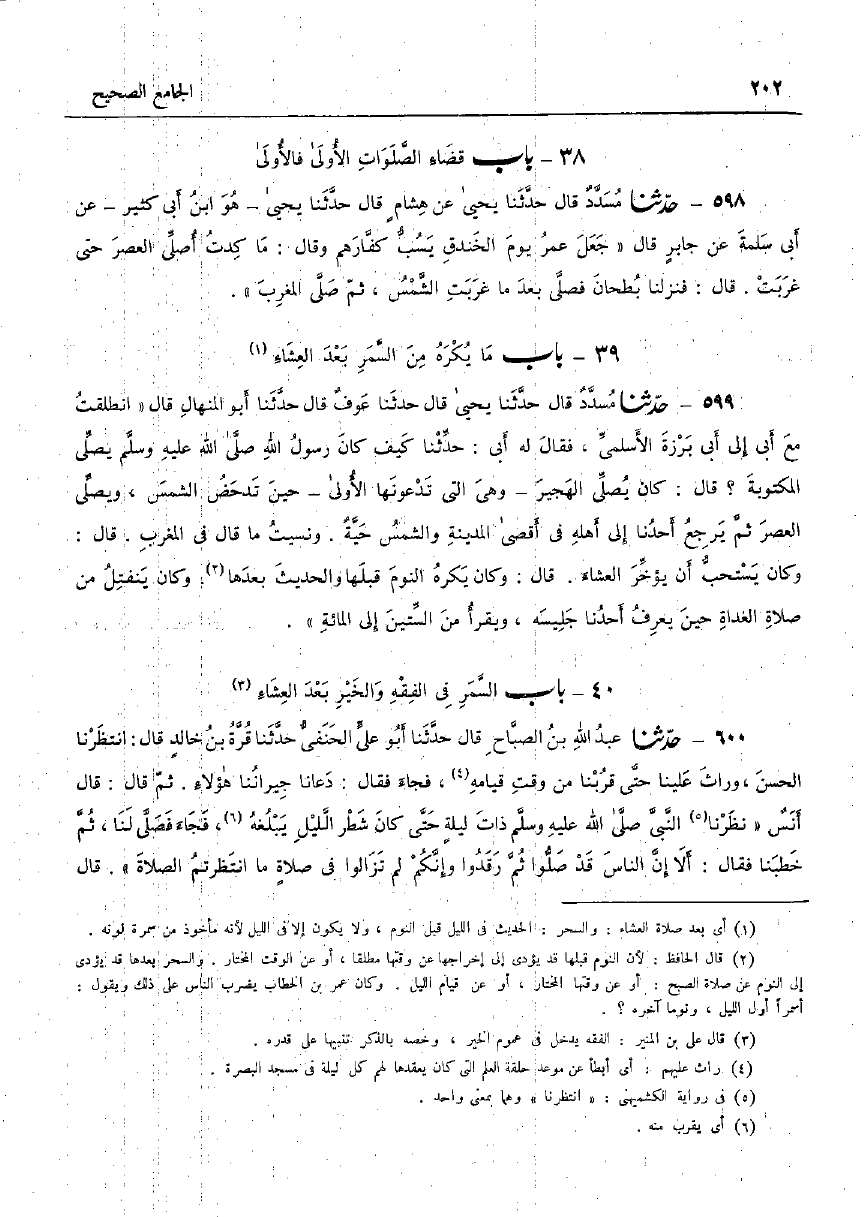 ٢٠٢
الجامع الصحيح
٣٨ – باب قضَاءِ الصَّلَوَاتِ الأُولَىٰ فالأُولَىٰ
٥٩٨ – حدّثنا مُسَدَّدٌ قال حدَّثَنا يحيىٰ عن هِشامٍ قال حدَّثَنا يحيىٰ – هُوَ ابنُ أبى كثير – عن
أبى سَلمةَ عن جابرٍ قال « جَعَلَ عمرُ يومَ الخندقِ يَسُبُّ كفَّارَهم وقال : مَا كِدتُ أُصلِّى العصرَ حتى
غرَبَتْ . قال : فنزلنا بُطحانَ فصلَّى بعدَ ما غرَبَتِ الشَّمْسُ ، ثمّ صَلَّى المغرِبَ » .
٣٩ – باب مَا يُكْرَهُ مِنَ السَّمَرِ بَعْدَ العِشَاءِ (١)
٥٩٩ – حدّثنا مُسدَّدٌ قال حدَّثَنا يحيىٰ قال حدثنا عَوفٌ قال حدَّثَنا أبو المنهالِ قال « انطلقتُ
معَ أبى إلى أبى بَرْزةَ الأَسلمىِّ ، فقالَ له أبى : حدِّثْنا كَيفَ كانَ رسولُ اللهِ صلَّىٰ اللهُ عليهِ وسلَّم يصلِّى
المكتوبةَ ؟ قال : كان يُصلِّى الهَجيرَ – وهىَ التى تَدْعونَها الأُولىٰ – حينَ تَدحَضُ الشمسُ ، ويصلِّى
العصرَ ثمَّ يَرجعُ أحدُنا إلى أهلهِ فى أقصىٰ المدينةِ والشمسُ حَيَّةٌ . ونسيتُ ما قال فى المغربِ . قال :
وكان يَسْتحبُّ أن يؤخِّرَ العشاءَ . قال : وكان يَكرهُ النومَ قبلَها والحديثَ بعدَها (٢) . وكان يَنفتِلُ من
صلاةِ الغداةِ حينَ يعرِفُ أحدُنا جَلِيسَه ، ويقرأُ منَ السِّتينَ إلى المائةِ » .
٤٠ – باب السَّمَرِ فِى الفِقْهِ وَالخَيْرِ بَعْدَ العِشَاءِ (٣)
٦٠٠ – حدّثنا عبدُ اللهِ بنُ الصبَّاحِ قال حدَّثَنا أبُو علىٍّ الحَنَفىُّ حدَّثَنا قُرَّةُ بنُ خالدٍ قال : انتظَرْنا
الحسنَ ، وراثَ عَلينا حتَّى قرُبْنا من وقتِ قيامهِ (٤) ، فجاءَ فقال : دَعانا جيرانُنا هٰؤلاءِ . ثمّ قال : قال
أَنَسٌ « نظَرْنا (٥) النَّبىَّ صلَّىٰ اللهُ عليهِ وسلَّم ذاتَ ليلةٍ حَتَّى كانَ شَطْر الَّليْلِ يَبْلُغهُ (٦) ، فَجَاءَ فَصَلَّى لَنَا ، ثُمَّ
خَطبَنا فقال : أَلَا إنَّ الناسَ قَدْ صَلُّوا ثُمَّ رَقَدُوا وإنَّكُمْ لم تَزَالوا فى صلاةٍ ما انتَظَرتمُ الصلاةَ » . قال
(١) أى بعد صلاة العشاء : والسحر : الحديث فى الليل قبل النوم ، ولا يكون إلا فى الليل لأنه مأخوذ من سمرة لونه .
(٢) قال الحافظ : لأن النوم قبلها قد يؤدى إلى إخراجها عن وقتها مطلقا ، أو عن الوقت المختار . والسحر بعدها قد يؤدى
إلى النوم عن صلاة الصبح : أو عن وقتها المختار ، أو عن قيام الليل . وكان عمر بن الخطاب يضرب الناس على ذلك ويقول :
أسمراً أول الليل ، ونوما آخره ؟ .
(٣) قال على بن المنير : الفقه يدخل فى عموم الخير ، وخصه بالذكر تنبيها على قدره .
(٤) راث عليهم : أى أبطأ عن موعد حلقة العلم التى كان يعقدها لهم كل ليلة فى مسجد البصرة .
(٥) فى رواية الكشميهنى : « انتظرنا » وهما بمعنى واحد .
(٦) أى يقرب منه .